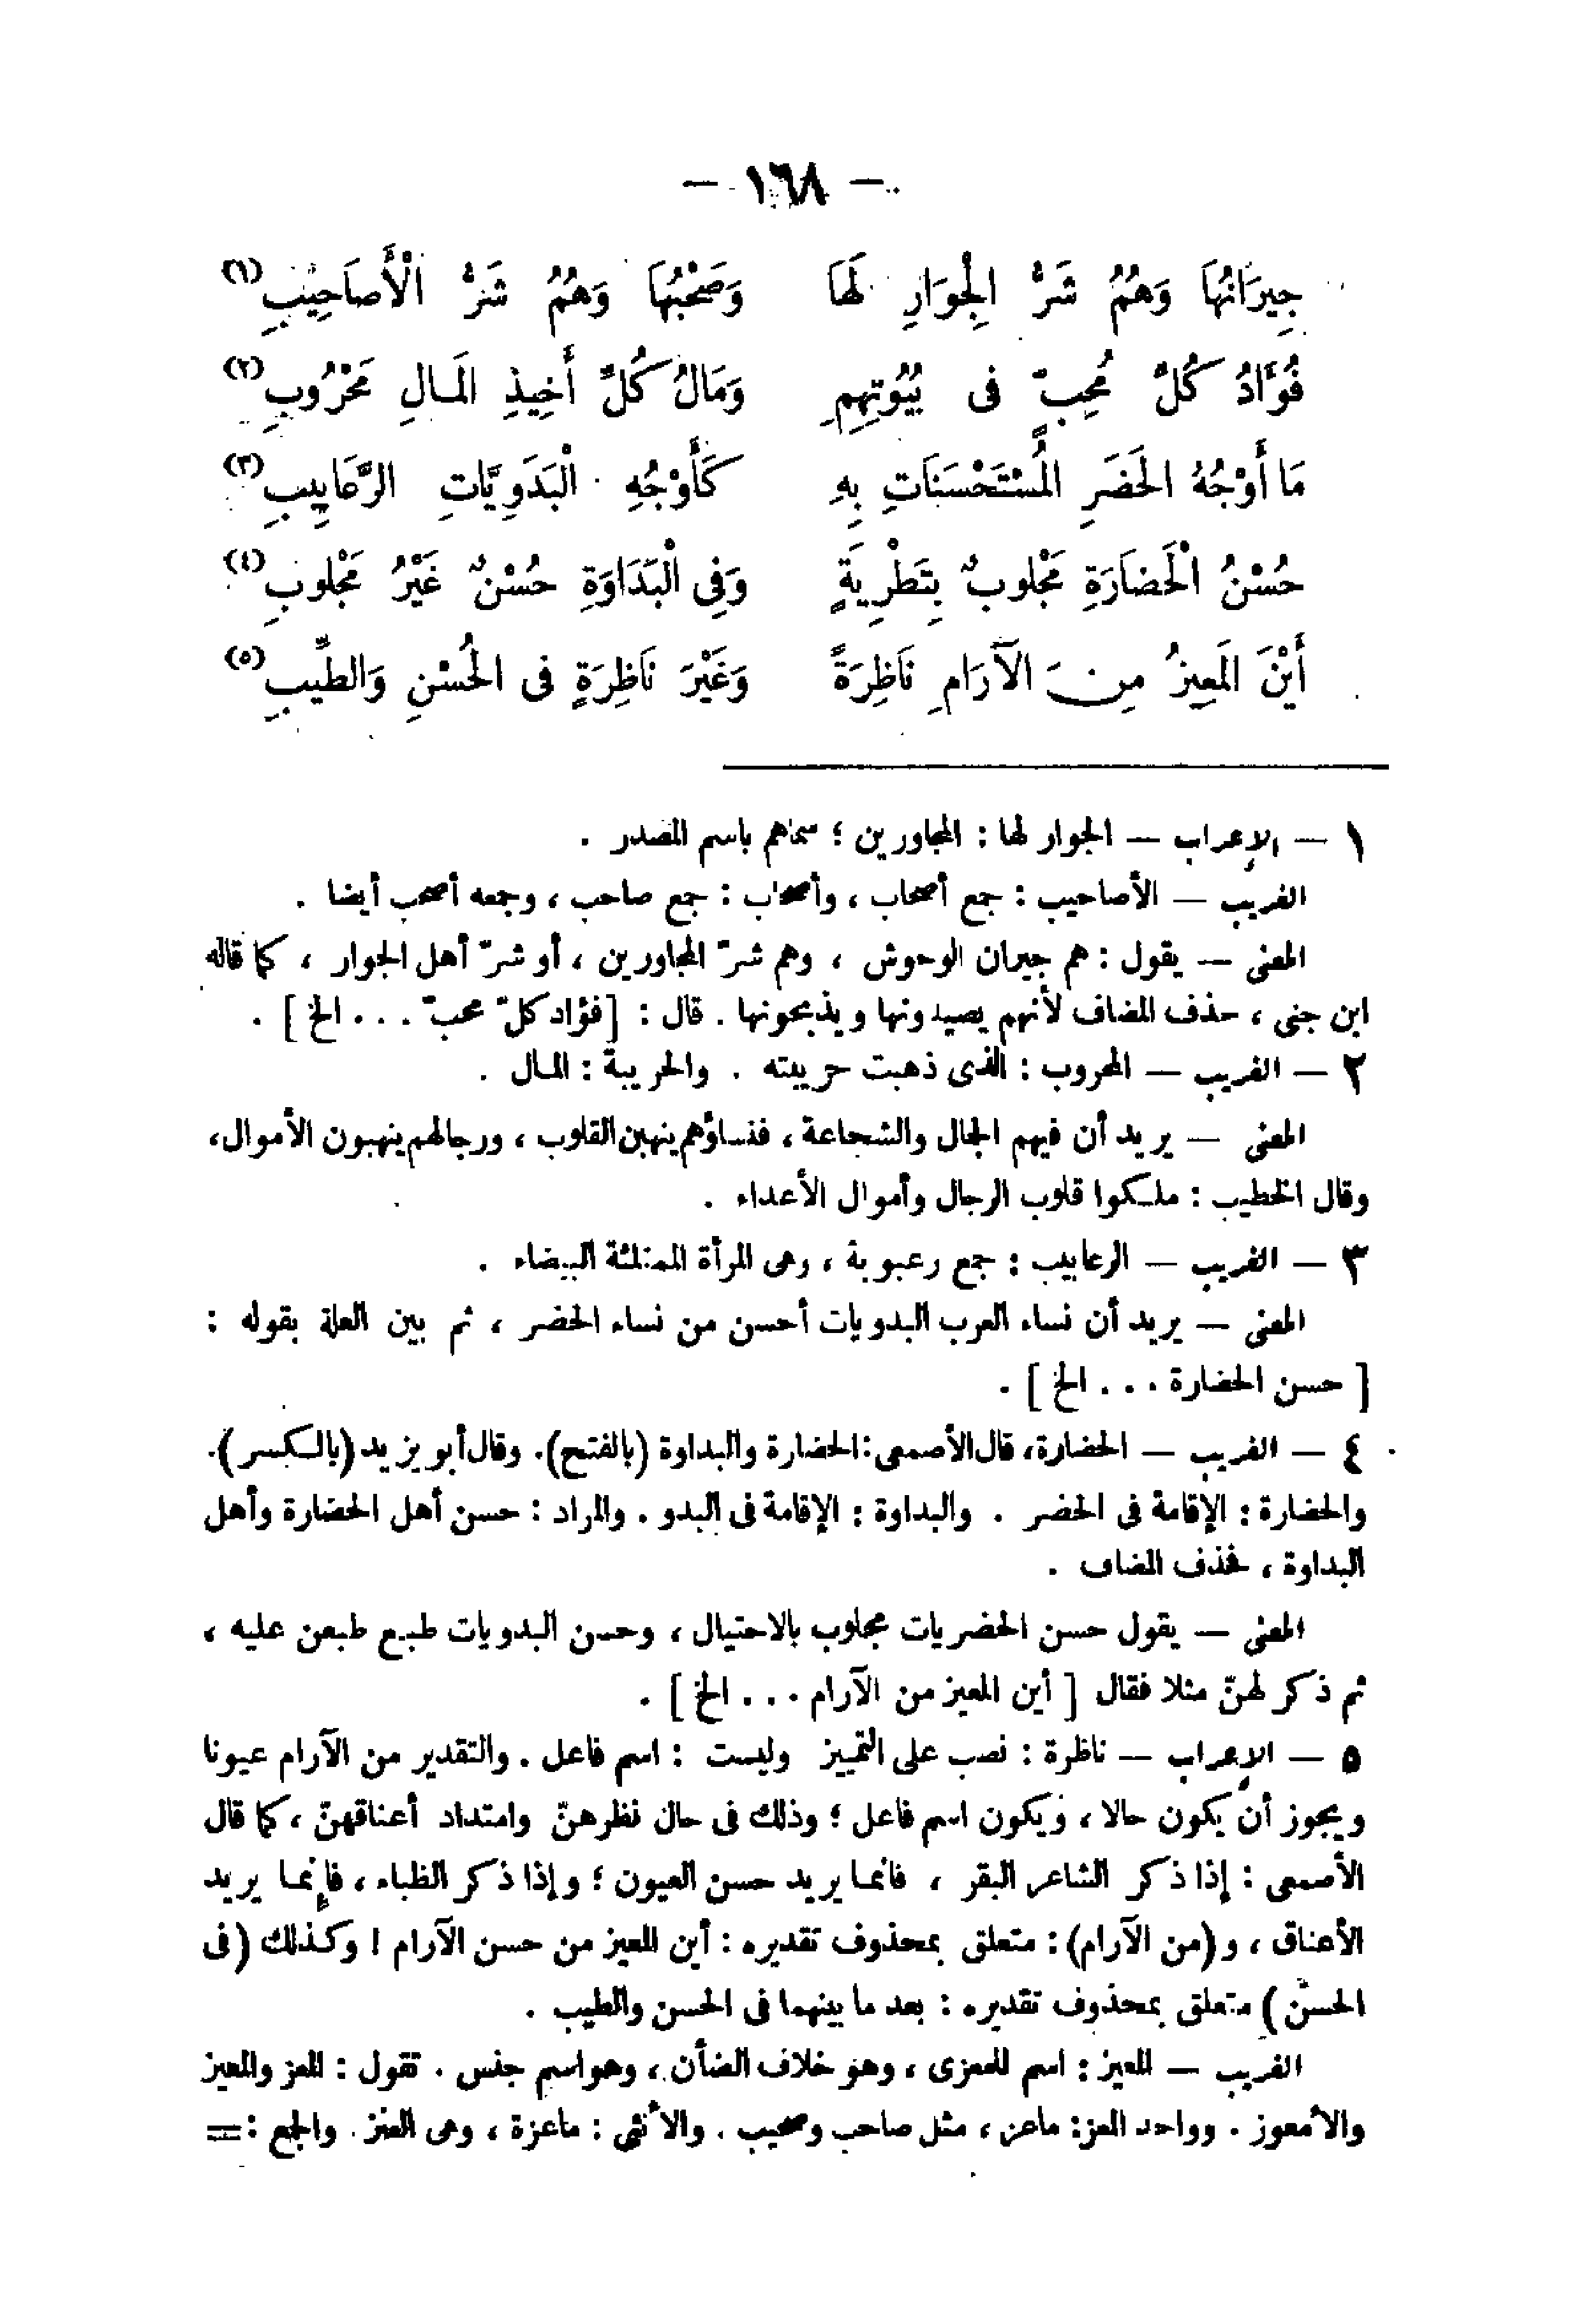 — ١٦٨ —
جِيرَانُهَا وَهُمُ شَرُّ الْجِوَارِ لَهَا وَصَحْبُهَا وَهُمُ شَرُّ الْأَصَاحِيبِ (١)
فُؤَادُ كُلِّ مُحِبٍّ فى بُيُوتِهِمِ وَمَالُ كُلِّ أَخِيذِ المَالِ مَحْرُوبِ (٢)
مَا أَوْجُهُ الحَضَرِ المُسْتَحْسَنَاتِ بِهِ كَأَوْجُهِ الْبَدَوِيَّاتِ الرَّعَابِيبِ (٣)
حُسْنُ الْحَضَارَةِ مَجْلوبٌ بِتَطْرِيَةٍ وَفِى الْبَدَاوَةِ حُسْنٌ غَيْرُ مَجْلوبِ (٤)
أَيْنَ المَعِيزُ مِنَ الآرَامِ نَاظِرَةً وَغَيْرَ نَاظِرَةٍ فى الحُسْنِ وَالطِّيبِ (٥)
١ — الإعراب — الجوار لها : المجاورين ؛ سماهم باسم المصدر .
الغريب — الأصاحيب : جمع أصحاب ، وأصحاب : جمع صاحب ، وجمعه أصحب أيضا .
المعنى — يقول : هم جيران الوحوش ، وهم شرّ المجاورين ، أو شرّ أهل الجوار ، كما قاله
ابن جنى ، حذف المضاف لأنهم يصيدونها ويذبحونها . قال : [فؤاد كلّ محبّ ... الخ] .
٢ — الغريب — المحروب : الذى ذهبت حريبته . والحريبة : المال .
المعنى — يريد أن فيهم الجمال والشجاعة ، فنساؤهم ينهبن القلوب ، ورجالهم ينهبون الأموال،
وقال الخطيب : ملكوا قلوب الرجال وأموال الأعداء .
٣ — الغريب — الرعابيب : جمع رعبوبة ، وهى المرأة الممتلئة البيضاء .
المعنى — يريد أن نساء العرب البدويات أحسن من نساء الحضر ، ثم بين العلة بقوله :
[ حسن الحضارة ... الخ ] .
٤ — الغريب — الحضارة، قال الأصمعى: الحضارة والبداوة (بالفتح). وقال أبو يزيد (بالكسر).
والحضارة : الإقامة فى الحضر . والبداوة : الإقامة فى البدو . والمراد : حسن أهل الحضارة وأهل
البداوة ، فحذف المضاف .
المعنى — يقول حسن الحضريات مجلوب بالاحتيال ، وحسن البدويات طبع طبعن عليه ،
ثم ذكر لهنّ مثلا فقال [ أين المعيز من الآرام ... الخ ] .
٥ — الإعراب — ناظرة : نصب على التمييز وليست : اسم فاعل . والتقدير من الآرام عيونا
ويجوز أن يكون حالا ، ويكون اسم فاعل ؛ وذلك فى حال نظرهنّ وامتداد أعناقهنّ ، كما قال
الأصمعى : إذا ذكر الشاعر البقر ، فانما يريد حسن العيون ؛ وإذا ذكر الظباء ، فإنما يريد
الأعناق ، و(من الآرام) : متعلق بمحذوف تقديره : أين المعيز من حسن الآرام ! وكذلك (فى
الحسن) متعلق بمحذوف تقديره : بعد ما بينهما فى الحسن والطيب .
الغريب — المعيز : اسم للمعزى ، وهو خلاف الضأن ، وهو اسم جنس . تقول : المعز والمعيز
والأمعوز . وواحد المعز: ماعز ، مثل صاحب وصحيب . والأنثى : ماعزة ، وهى العنز . والجمع : =